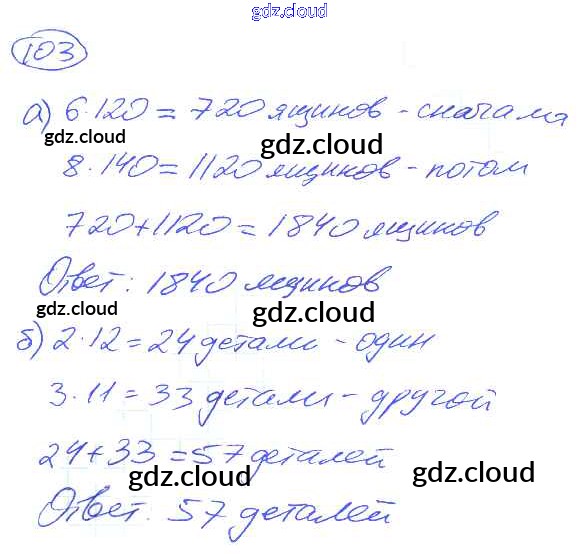 gdz.cloud
103
а) 6·120 = 720 ящиков - сначала
gdz.cloud
gdz.cloud
8·140 = 1120 ящиков - потом
gdz.cloud
gdz.cloud
720+1120 = 1840 ящиков
Ответ: 1840 ящиков
gdz.cloud
gdz.cloud
б) 2·12 = 24 детали - один
3·11 = 33 детали - другой
gdz.cloud
24+33 = 57 деталей
gdz.cloud
gdz.cloud
Ответ. 57 деталей
gdz.cloud